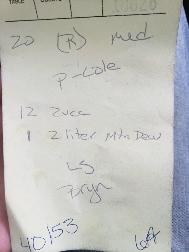 TABLE
20 (R) med
P-cole
12 Zucc
1 2 liter Mtn Dew
LG
40/53